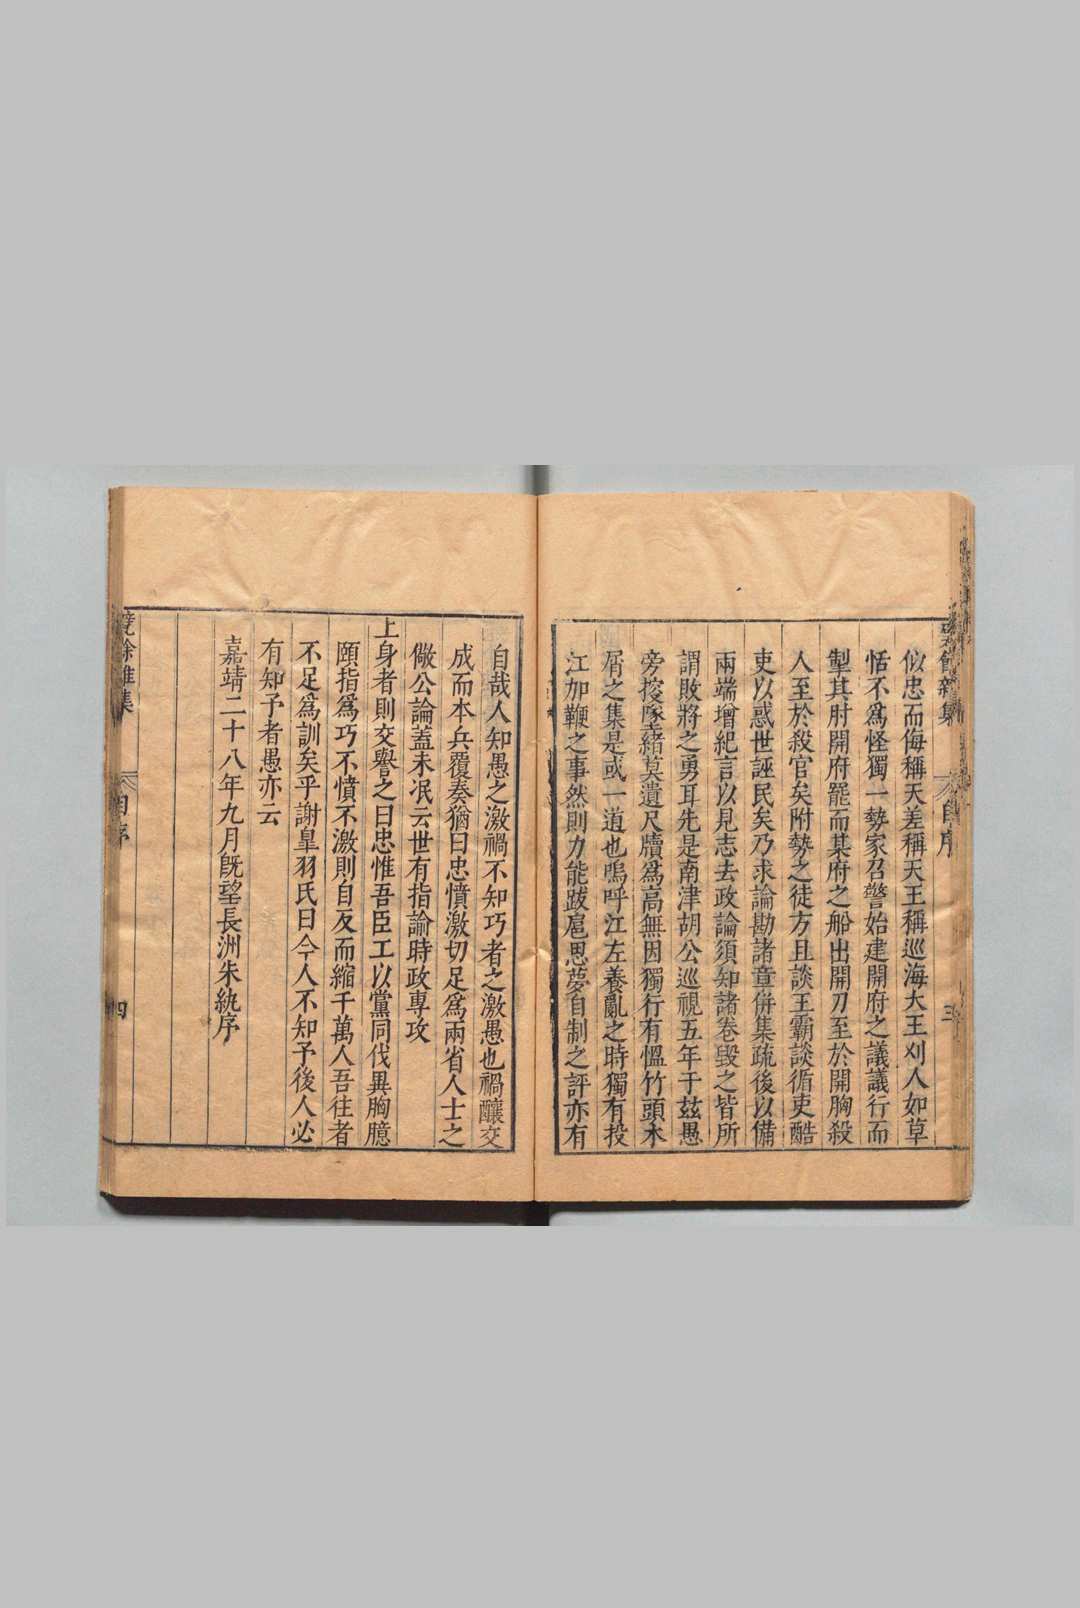 似忠而侮稱天差稱天王稱巡海大王刈人如草
恬不爲怪獨一勢家召警始建開府之議議行而
掣其肘開府罷而某府之船出開刀至於開胸殺
人至於殺官矣附勢之徒方且談王霸談循吏酷
吏以惑世誣民矣乃求論勘諸章併集疏後以備
兩端增紀言以見志去政論須知諸卷毀之皆所
謂敗將之勇耳先是南津胡公巡視五年于茲愚
旁挍墜緒莫遺尺牘爲高無因獨行有慍竹頭木
屑之集是或一道也嗚呼江左養亂之時獨有投
江加鞭之事然則力能跋扈思夢自制之評亦有
自序
三
自哉人知愚之激禍不知巧者之激愚也禍釀交
成而本兵覆奏猶曰忠憤激切足爲兩省人士之
儆公論蓋未泯云世有指諭時政專攻
上身者則交譽之曰忠惟吾臣工以黨同伐異胸臆
頤指爲巧不憤不激則自反而縮千萬人吾往者
不足爲訓矣乎謝臯羽氏曰今人不知予後人必
有知予者愚亦云
嘉靖二十八年九月旣望長洲朱紈序
自序
四